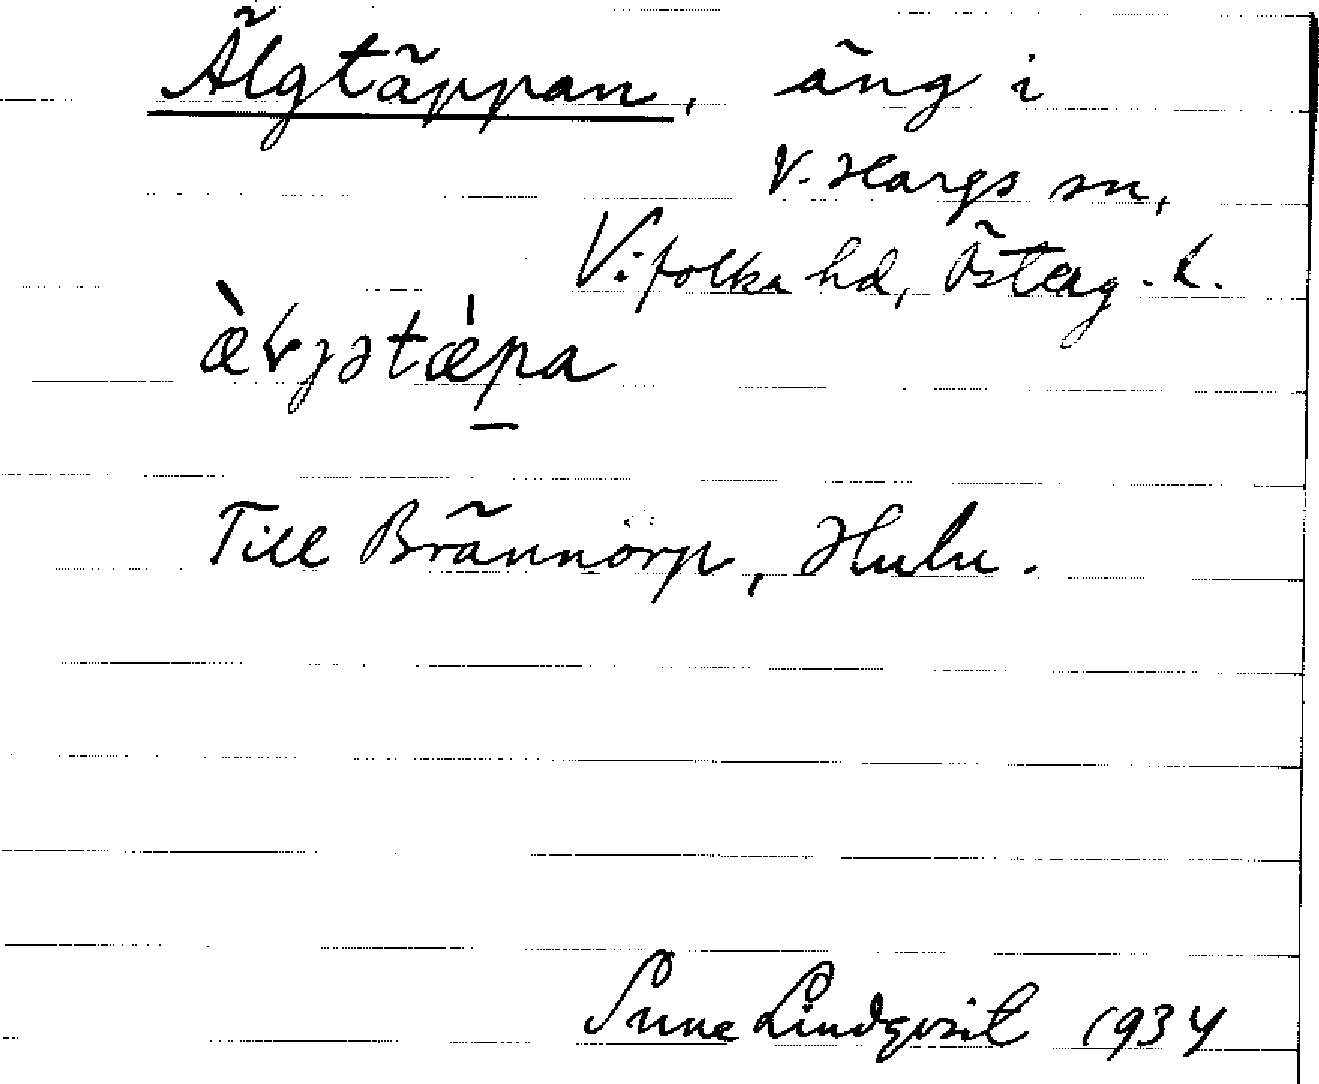 Älgtäppan, äng i
V. Hargs sn,
Vifolka hd, Österg. l.
æ̀ɽjətæ̀pa
Till Brännorp, Hulu.
Sune Lindqvist 1934